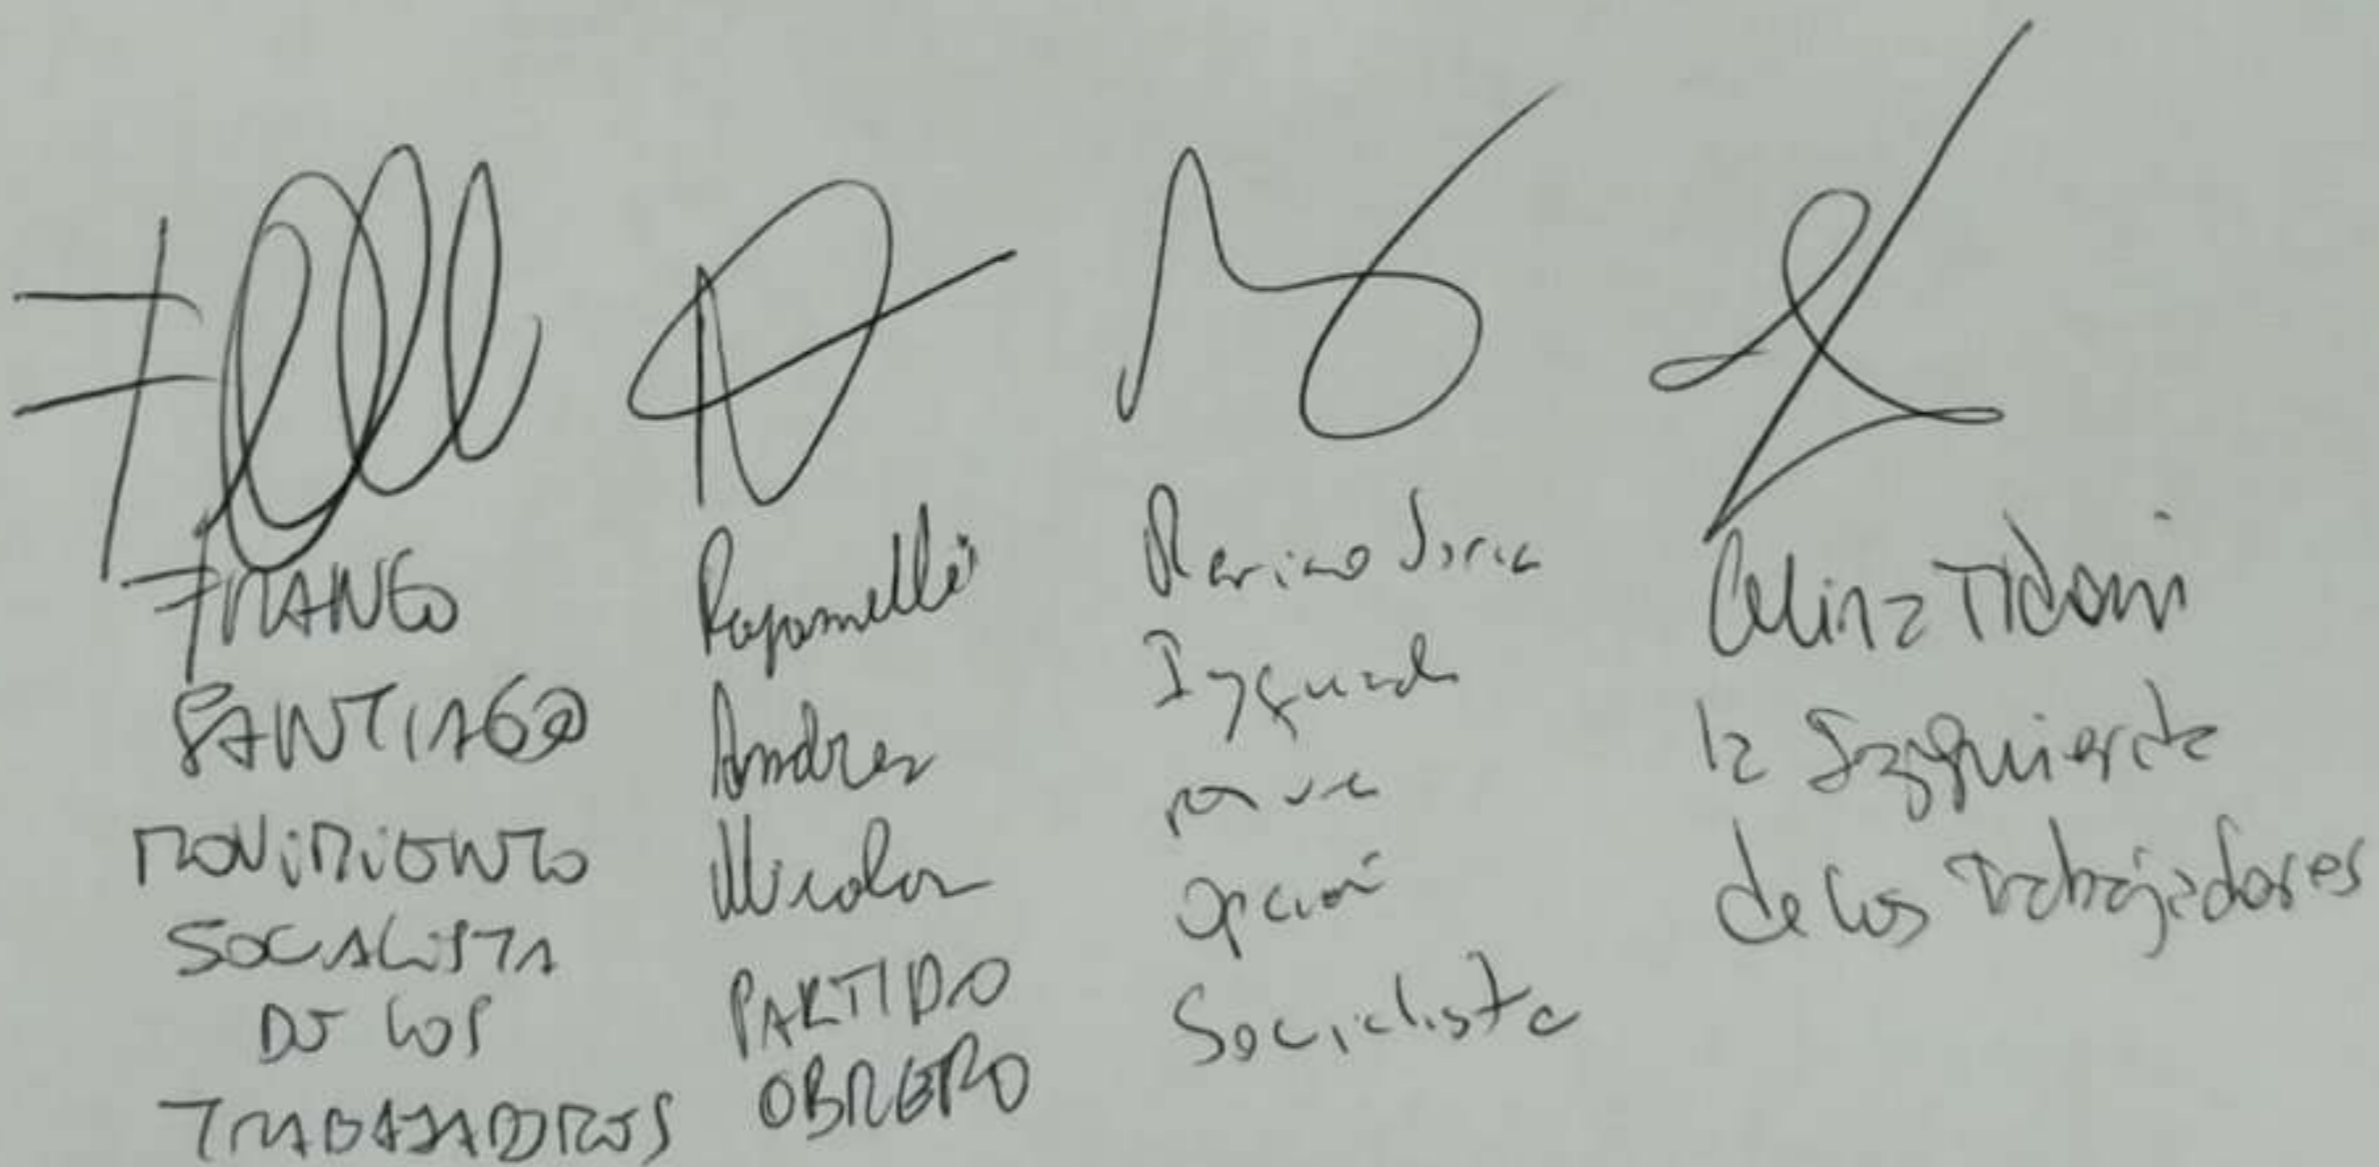 FRANCO
SANTIAGO
MOVIMIENTO
SOCALISTA
DE LOS
TRABAJADORES
Andres
Nicolas
PARTIDO
OBRERO
Mariano Soria
Izquierda
por una
opción
Socialista
Celina Tidoni
la Izquierda
de los Trabajadores